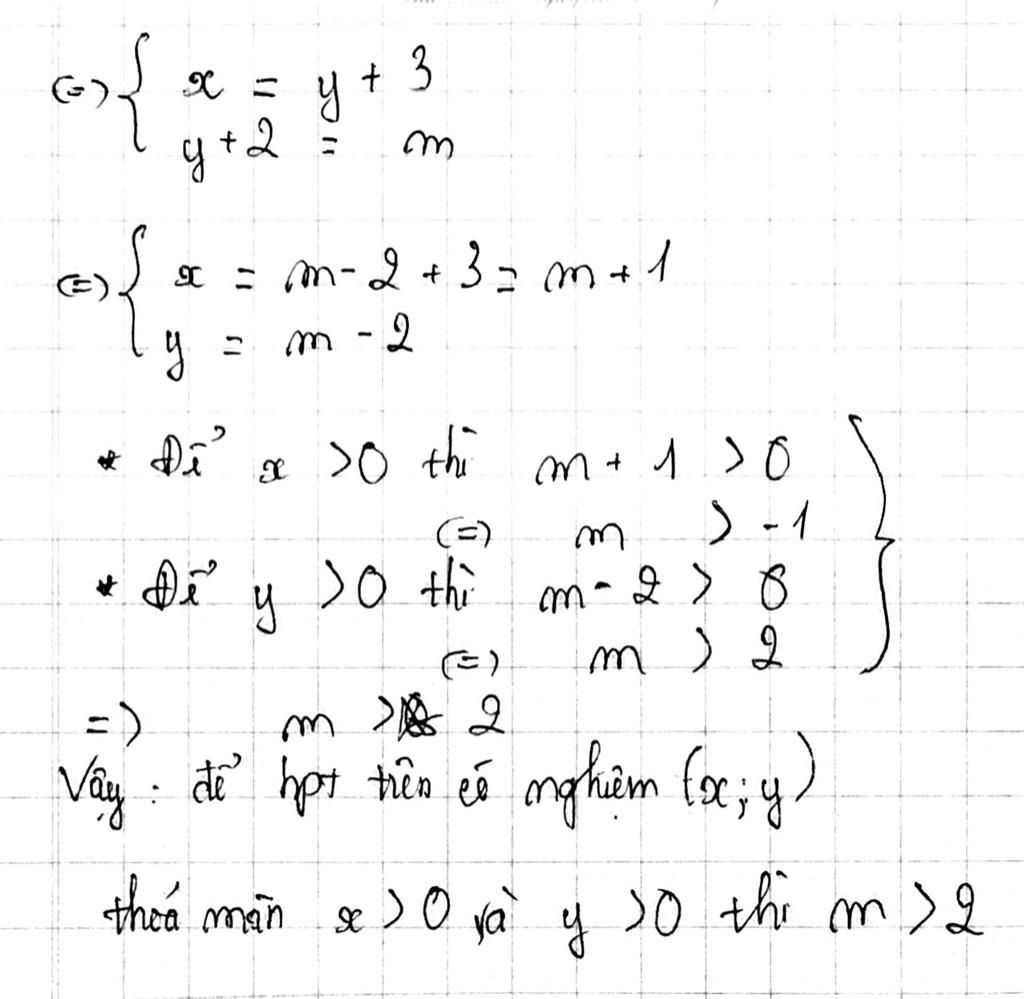 (=) { x = y + 3
y + 2 = m
(=) { x = m - 2 + 3 = m + 1
y = m - 2
* Để x > 0 thì m + 1 > 0
(=) m > -1
* Để y > 0 thì m - 2 > 0
(=) m > 2
=) m > 2
Vậy : để hpt trên có nghiệm (x; y)
thoả mãn x > 0 và y > 0 thì m > 2